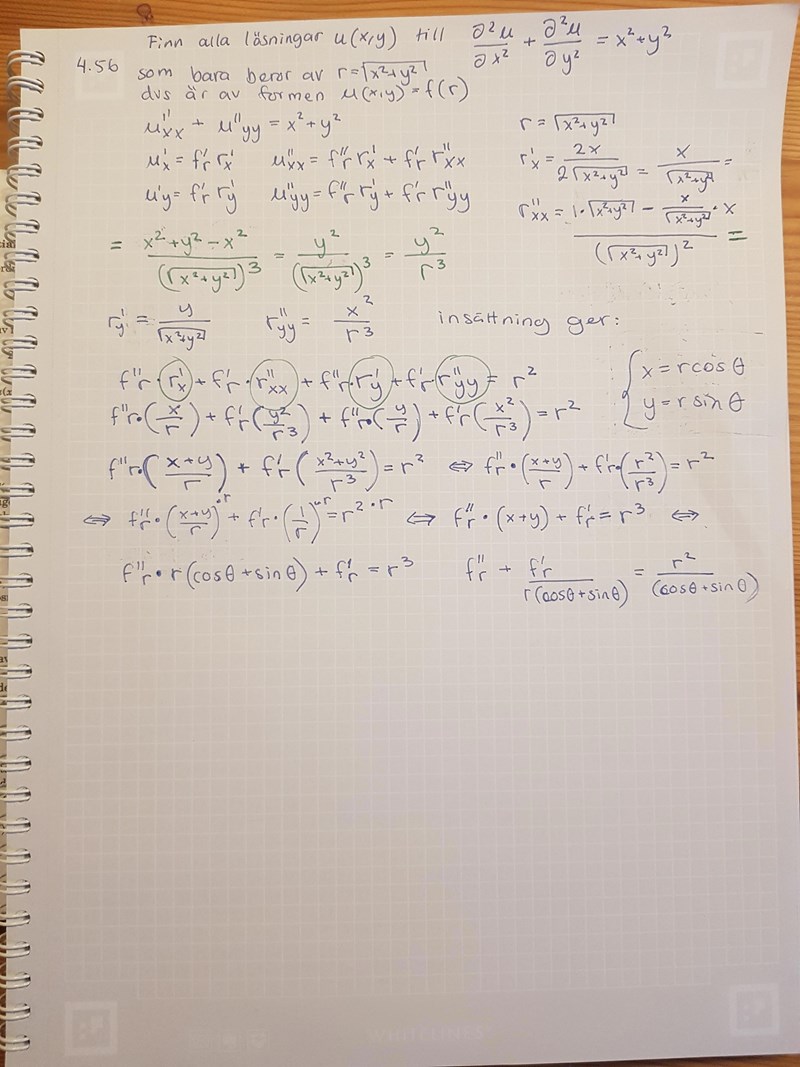 Finn alla lösningar u(x,y) till ∂²u/∂x² + ∂²u/∂y² = x²+y²
4.56 som bara beror av r=√(x²+y²)
dvs är av formen u(x,y)=f(r)
u''xx + u''yy = x²+y²
r = √(x²+y²)
u'x = f'r r'x u''xx = f''r r'x + f'r r''xx
r'x = 2x/(2√(x²+y²)) = x/√(x²+y²) =
u'y = f'r r'y u''yy = f''r r'y + f'r r''yy
r''xx = (1·√(x²+y²) − x/√(x²+y²)·x)/(√(x²+y²))² =
= (x²+y²−x²)/(√(x²+y²))³ = y²/(√(x²+y²))³ = y²/r³
r'y = y/√(x²+y²) r''yy = x²/r³ insättning ger:
f''r·r'x + f'r·r''xx + f''r·r'y + f'r r''yy = r²
{ x = r cos θ
y = r sin θ
f''r·(x/r) + f'r(y²/r³) + f''r·(y/r) + f'r(x²/r³) = r²
f''r·((x+y)/r) + f'r((x²+y²)/r³) = r² ⇔ f''r·((x+y)/r) + f'r·(r²/r³) = r²
⇔ f''r·((x+y)/r)·r + f'r·(1/r)·r = r²·r ⇔ f''r·(x+y) + f'r = r³ ⇔
f''r·r(cosθ+sinθ) + f'r = r³ f''r + f'r/(r(cosθ+sinθ)) = r²/(cosθ+sinθ)